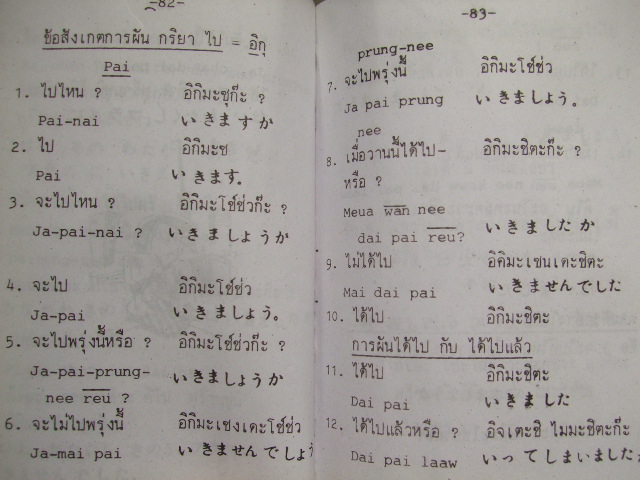 -82-
ข้อสังเกตการผัน กริยา ไป = อิกุ
Pai
1. ไปไหน ? อิกิมะซุก๊ะ ?
Pai-nai いきますか
2. ไป อิกิมะซ
Pai いきます。
3. จะไปไหน ? อิกิมะโช์ช่วก๊ะ ?
Ja-pai-nai ? いきましょうか
4. จะไป อิกิมะโช์ช่ว
Ja-pai いきましょう。
5. จะไปพรุ่งนี้หรือ ? อิกิมะโช์ช่วก๊ะ ?
Ja-pai-prung- いきましょうか
nee reu ?
6. จะไม่ไปพรุ่งนี้ อิกิมะเซงเดะโช์ช่ว
Ja-mai pai いきませんでしょう
-83-
prung-nee
7. จะไปพรุ่งนี้ อิกิมะโช์ช่ว
Ja pai prung いきましょう。
nee
8. เมื่อวานนี้ได้ไป- อิกิมะชิตะก๊ะ ?
หรือ ?
Meua wan nee
dai pai reu? いきましたか
9. ไม่ได้ไป อิคิมะเซนเดะชิตะ
Mai dai pai いきませんでした
10. ได้ไป อิกิมะชิตะ
การผันได้ไป กับ ได้ไปแล้ว
11. ได้ไป อิกิมะชิตะ
Dai pai いきました
12. ได้ไปแล้วหรือ ? อิจเตะชิ ไมมะชิตะก๊ะ
Dai pai laaw いってしまいましたか